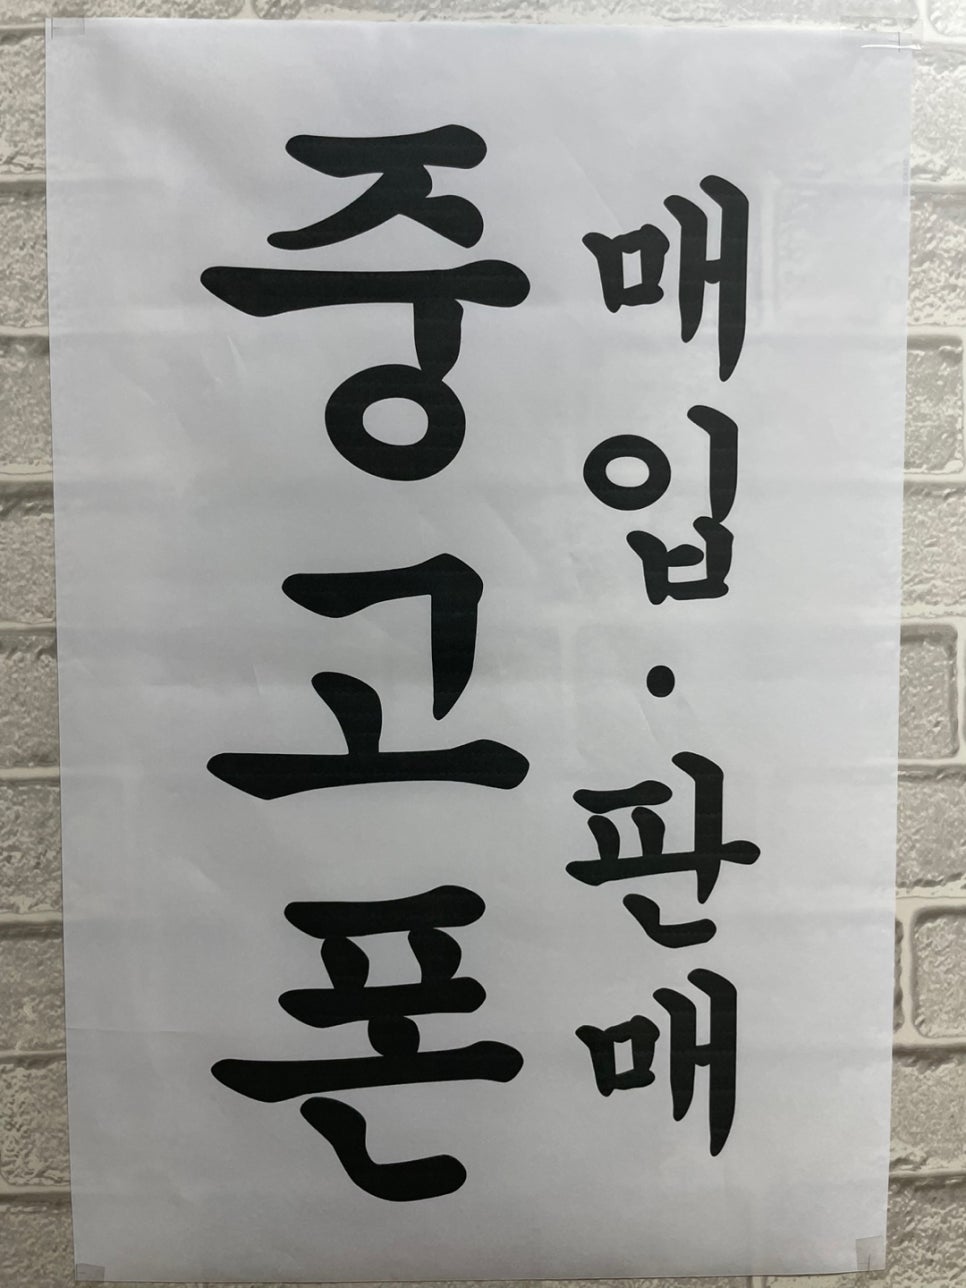 중고폰
매입·판매